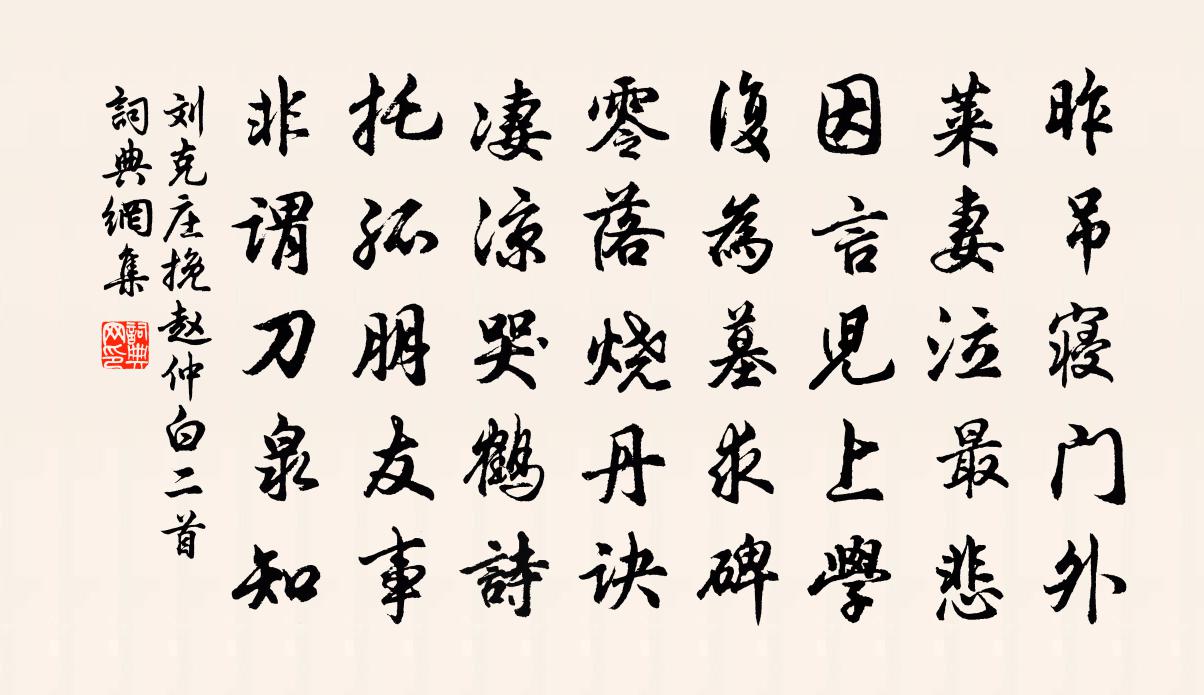 昨吊寝门外
莱妻泣最悲
因言児上學
復為墓求碑
零落烧丹诀
凄涼哭鹤詩
托孤朋友事
非谓刀泉知
刘克庄挽赵仲白二首
詞典網集
詞典网印